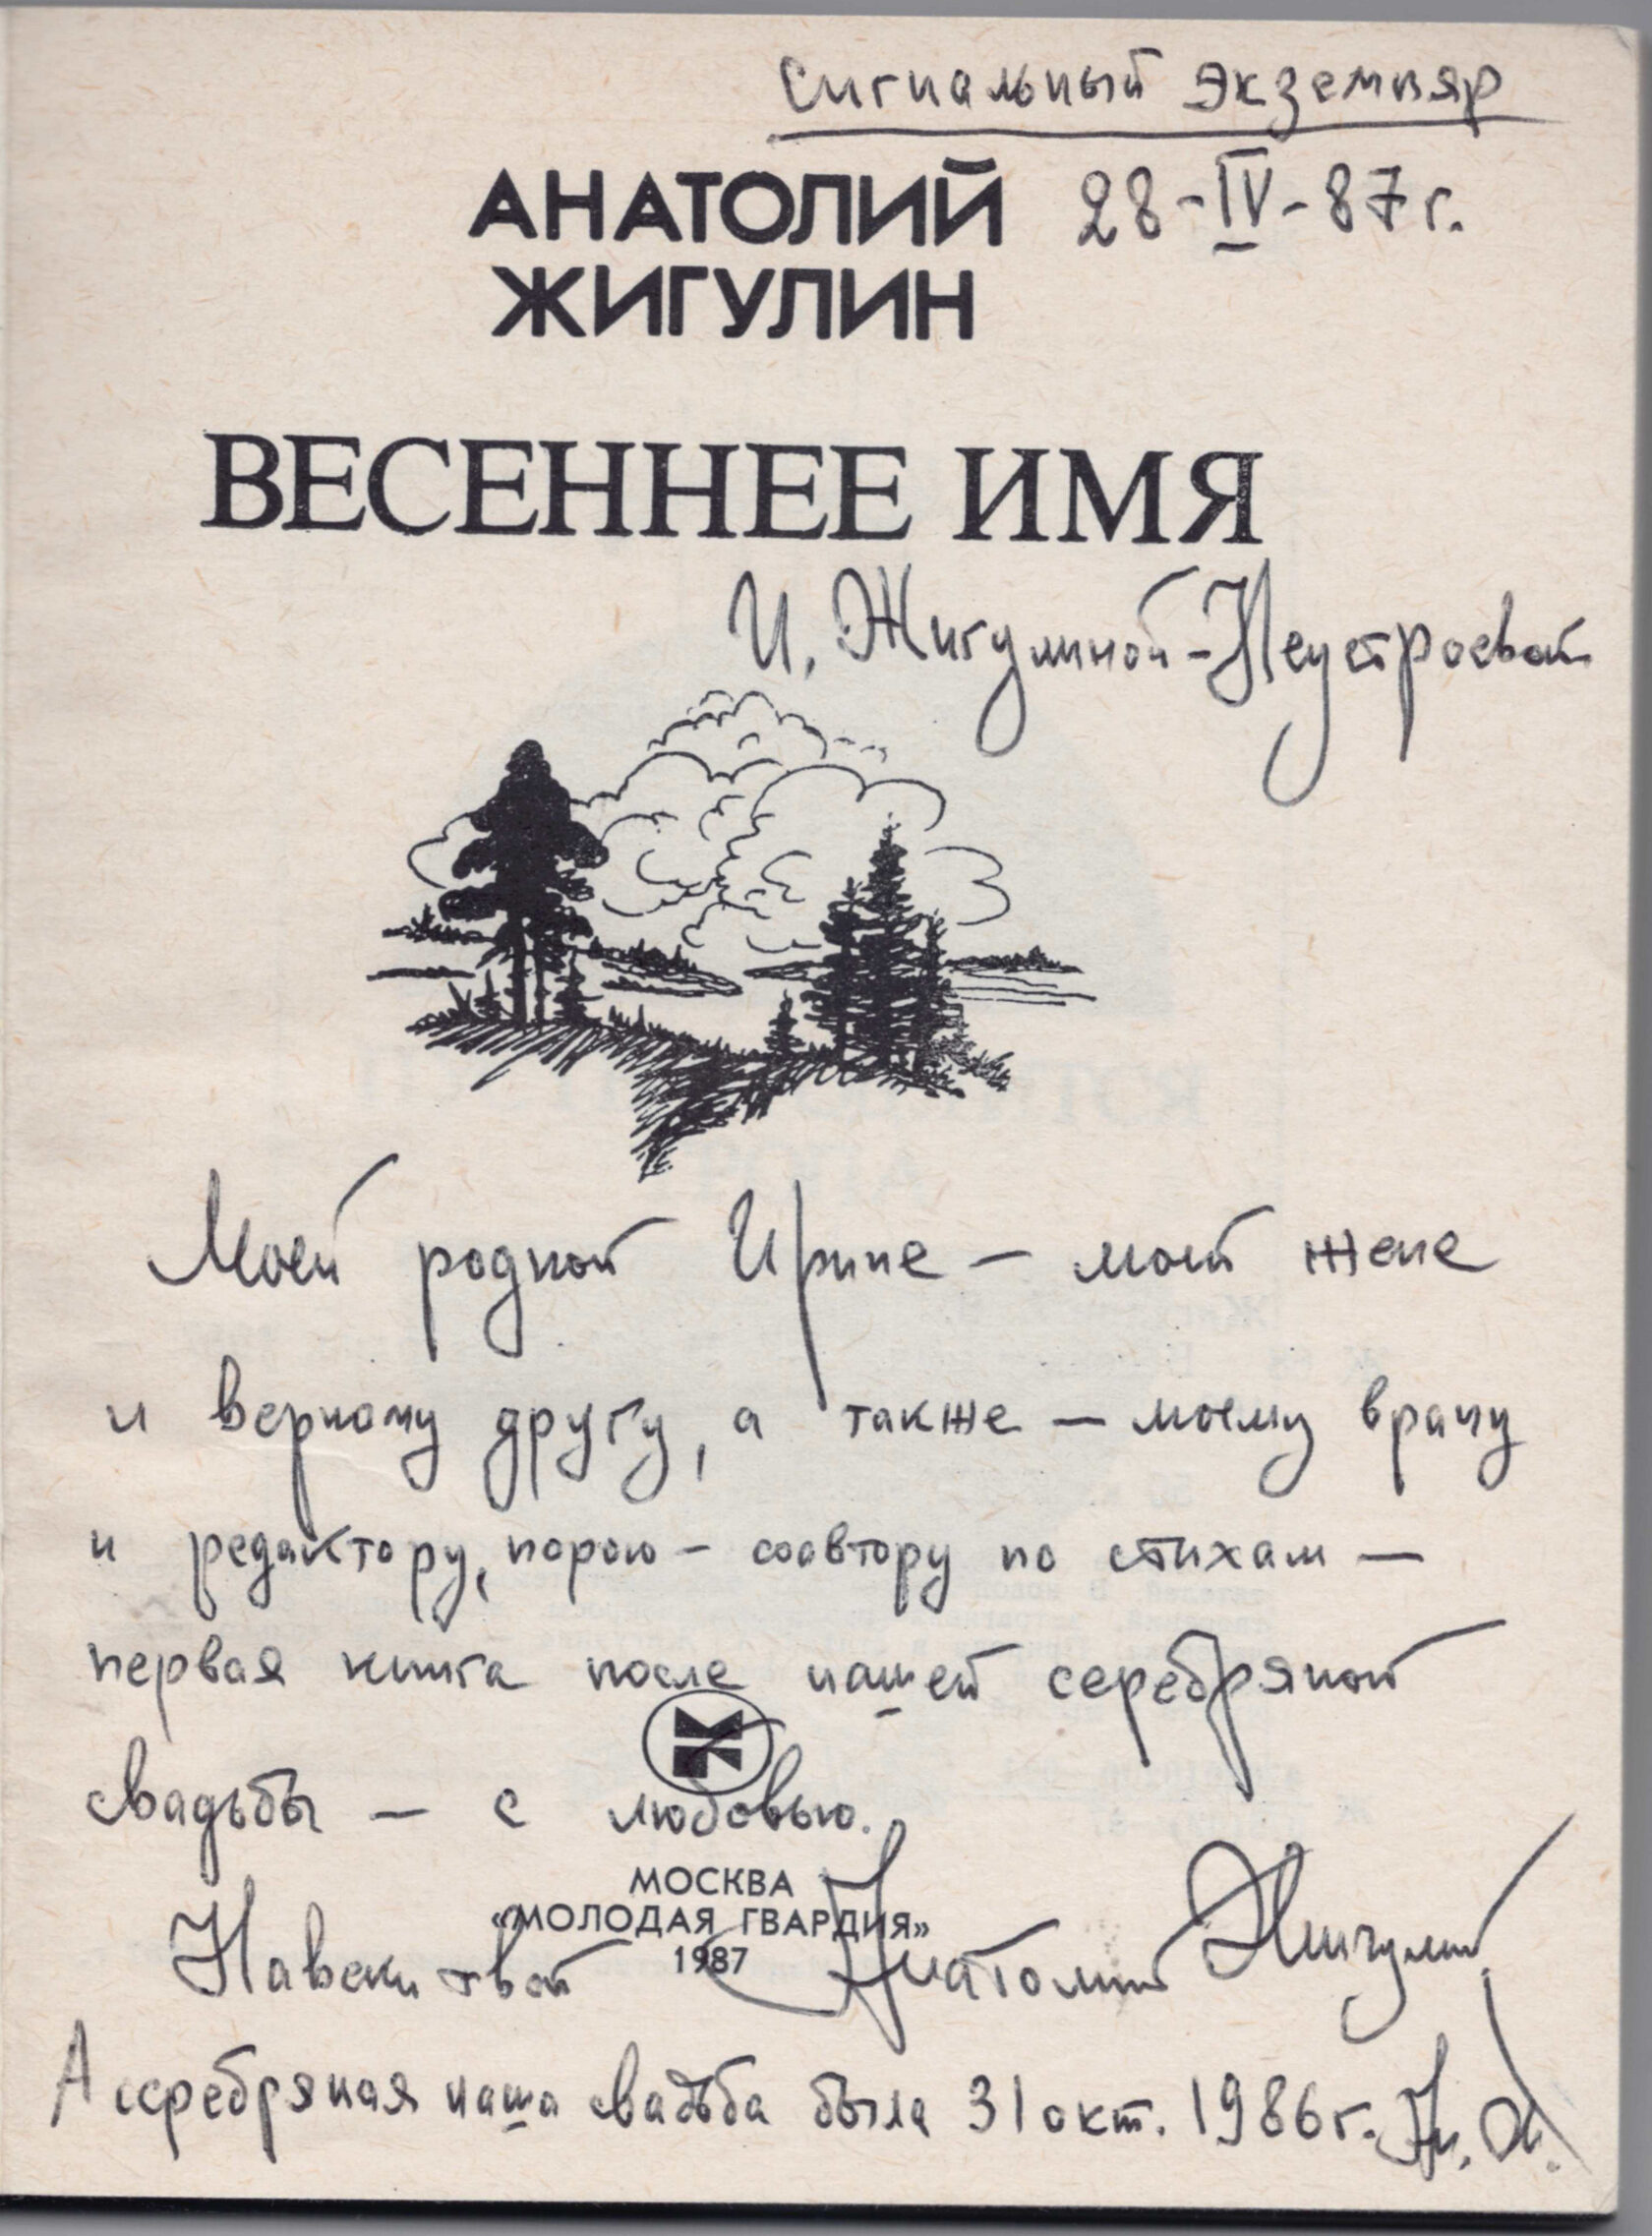 Сигнальный экземпляр
АНАТОЛИЙ 28-IV-87 г.
ЖИГУЛИН
ВЕСЕННЕЕ ИМЯ
И. Жигулиной-Неустроевой
Моей родной Ирине – моей жене
и верному другу, а также – моему врачу
и редактору, порою – соавтору по стихам –
первая книга после нашей серебряной
свадьбы – с любовью.
МОСКВА
«МОЛОДАЯ ГВАРДИЯ»
1987
Навеки твой Анатолий Жигулин
А серебряная наша свадьба была 31 окт. 1986 г. Ан. Ж.